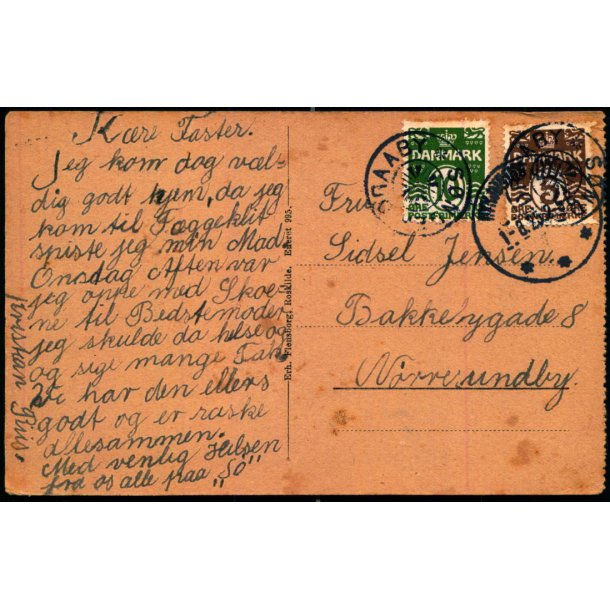 Kære Faster.
Jeg kom dog væl-
dig godt hjem, da jeg
kom til Fæggeklit
spiste jeg min Mad
Onsdag Aften var
jeg oppe med Skoe-
ne til Bedstemoder
jeg skulde da helse og
og sige mange Tak
Vi har den ellers
godt og er raske
allesammen.
Med venlig Hilsen
fra os alle paa "Sö"
Erh. Flensborg, Roskilde. Eneret 995.
DANMARK
10
POSTFRIM
RAABY
3
Fru
Sidsel Jensen.
Bakkebygade 8
Nörresundby.